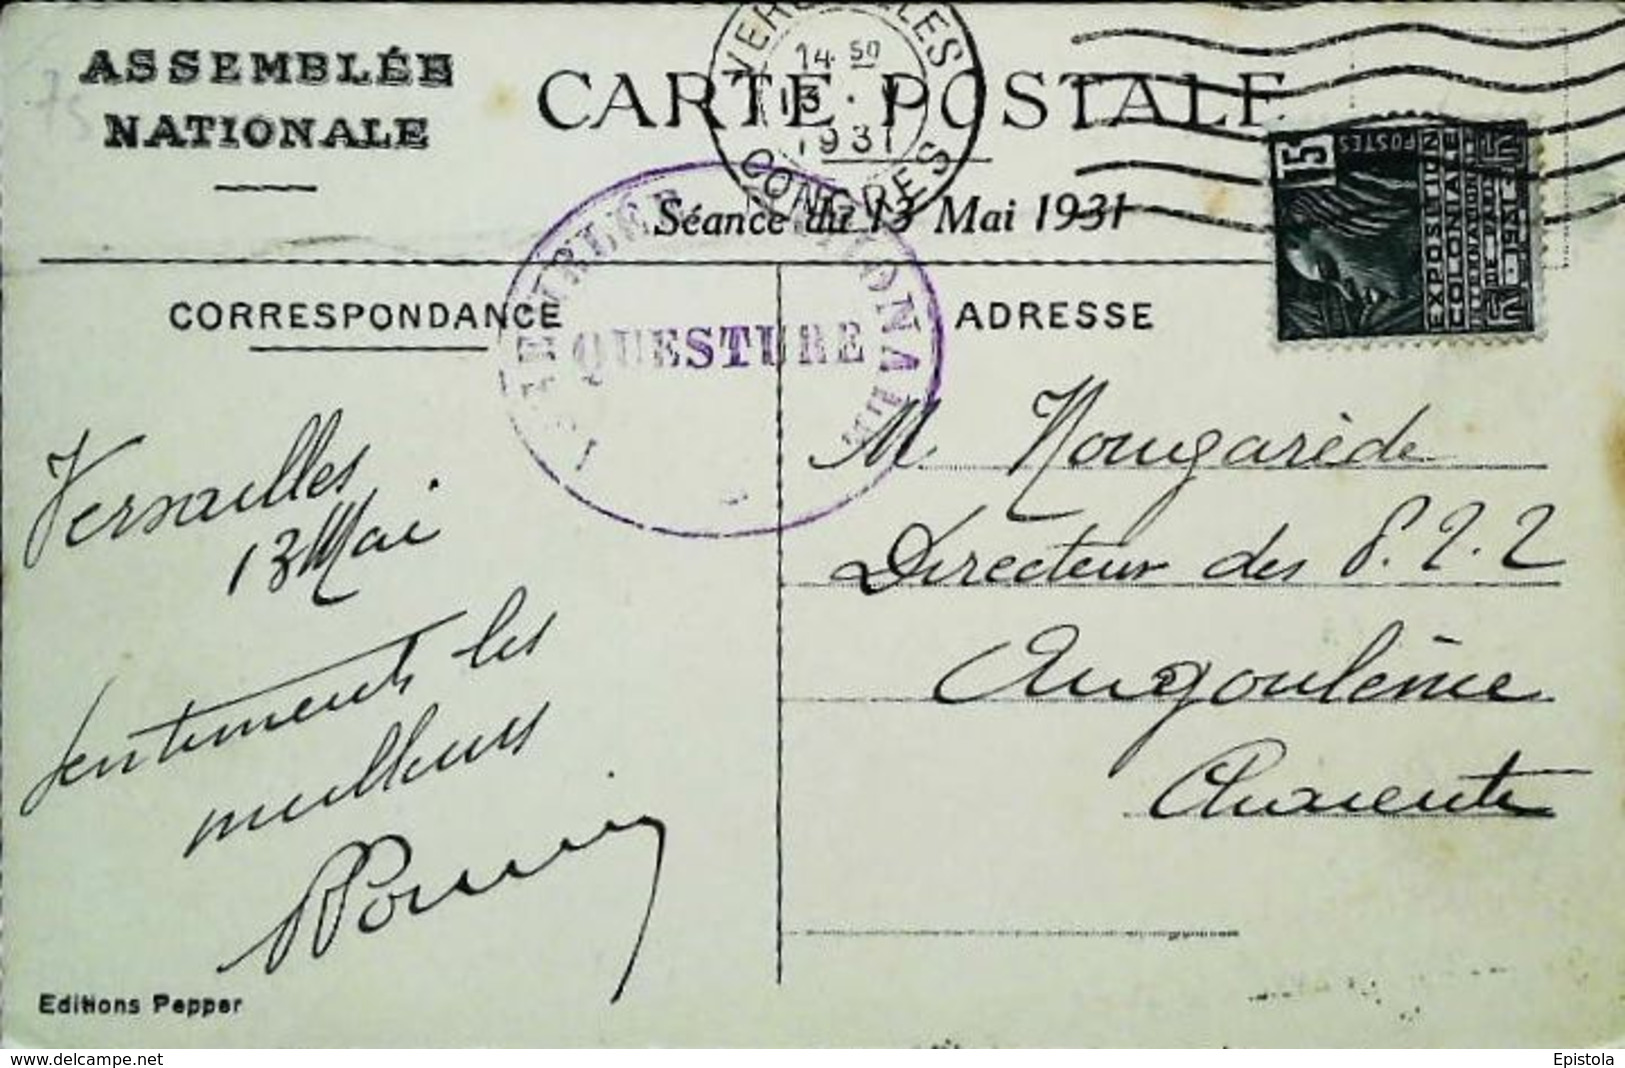 ASSEMBLÉE
NATIONALE
CARTE POSTALE
VERSAILLES
14 50
13 . V
1931
CONGRES
Séance du 13 Mai 1931
15
POSTES
EXPOSITION
COLONIALE
INTERNATIONALE
DE PARIS
1931
CORRESPONDANCE
QUESTURE
ADRESSE
Versailles
13 Mai.
Sentiments les
meilleurs
M Nougarède
Directeur des P.T.T
Angoulême
Charente
Editions Pepper
www.delcampe.net
Epistola